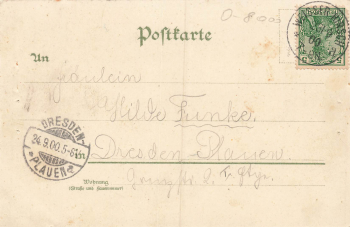 0-8000
Postkarte
WASSER
An
Fräulein
Hilde Funke.
DRESDEN-
24.9.00.5-6N
PLAUEN
Dresden-Plauen.
Wohnung
(Straße und Hausnummer)